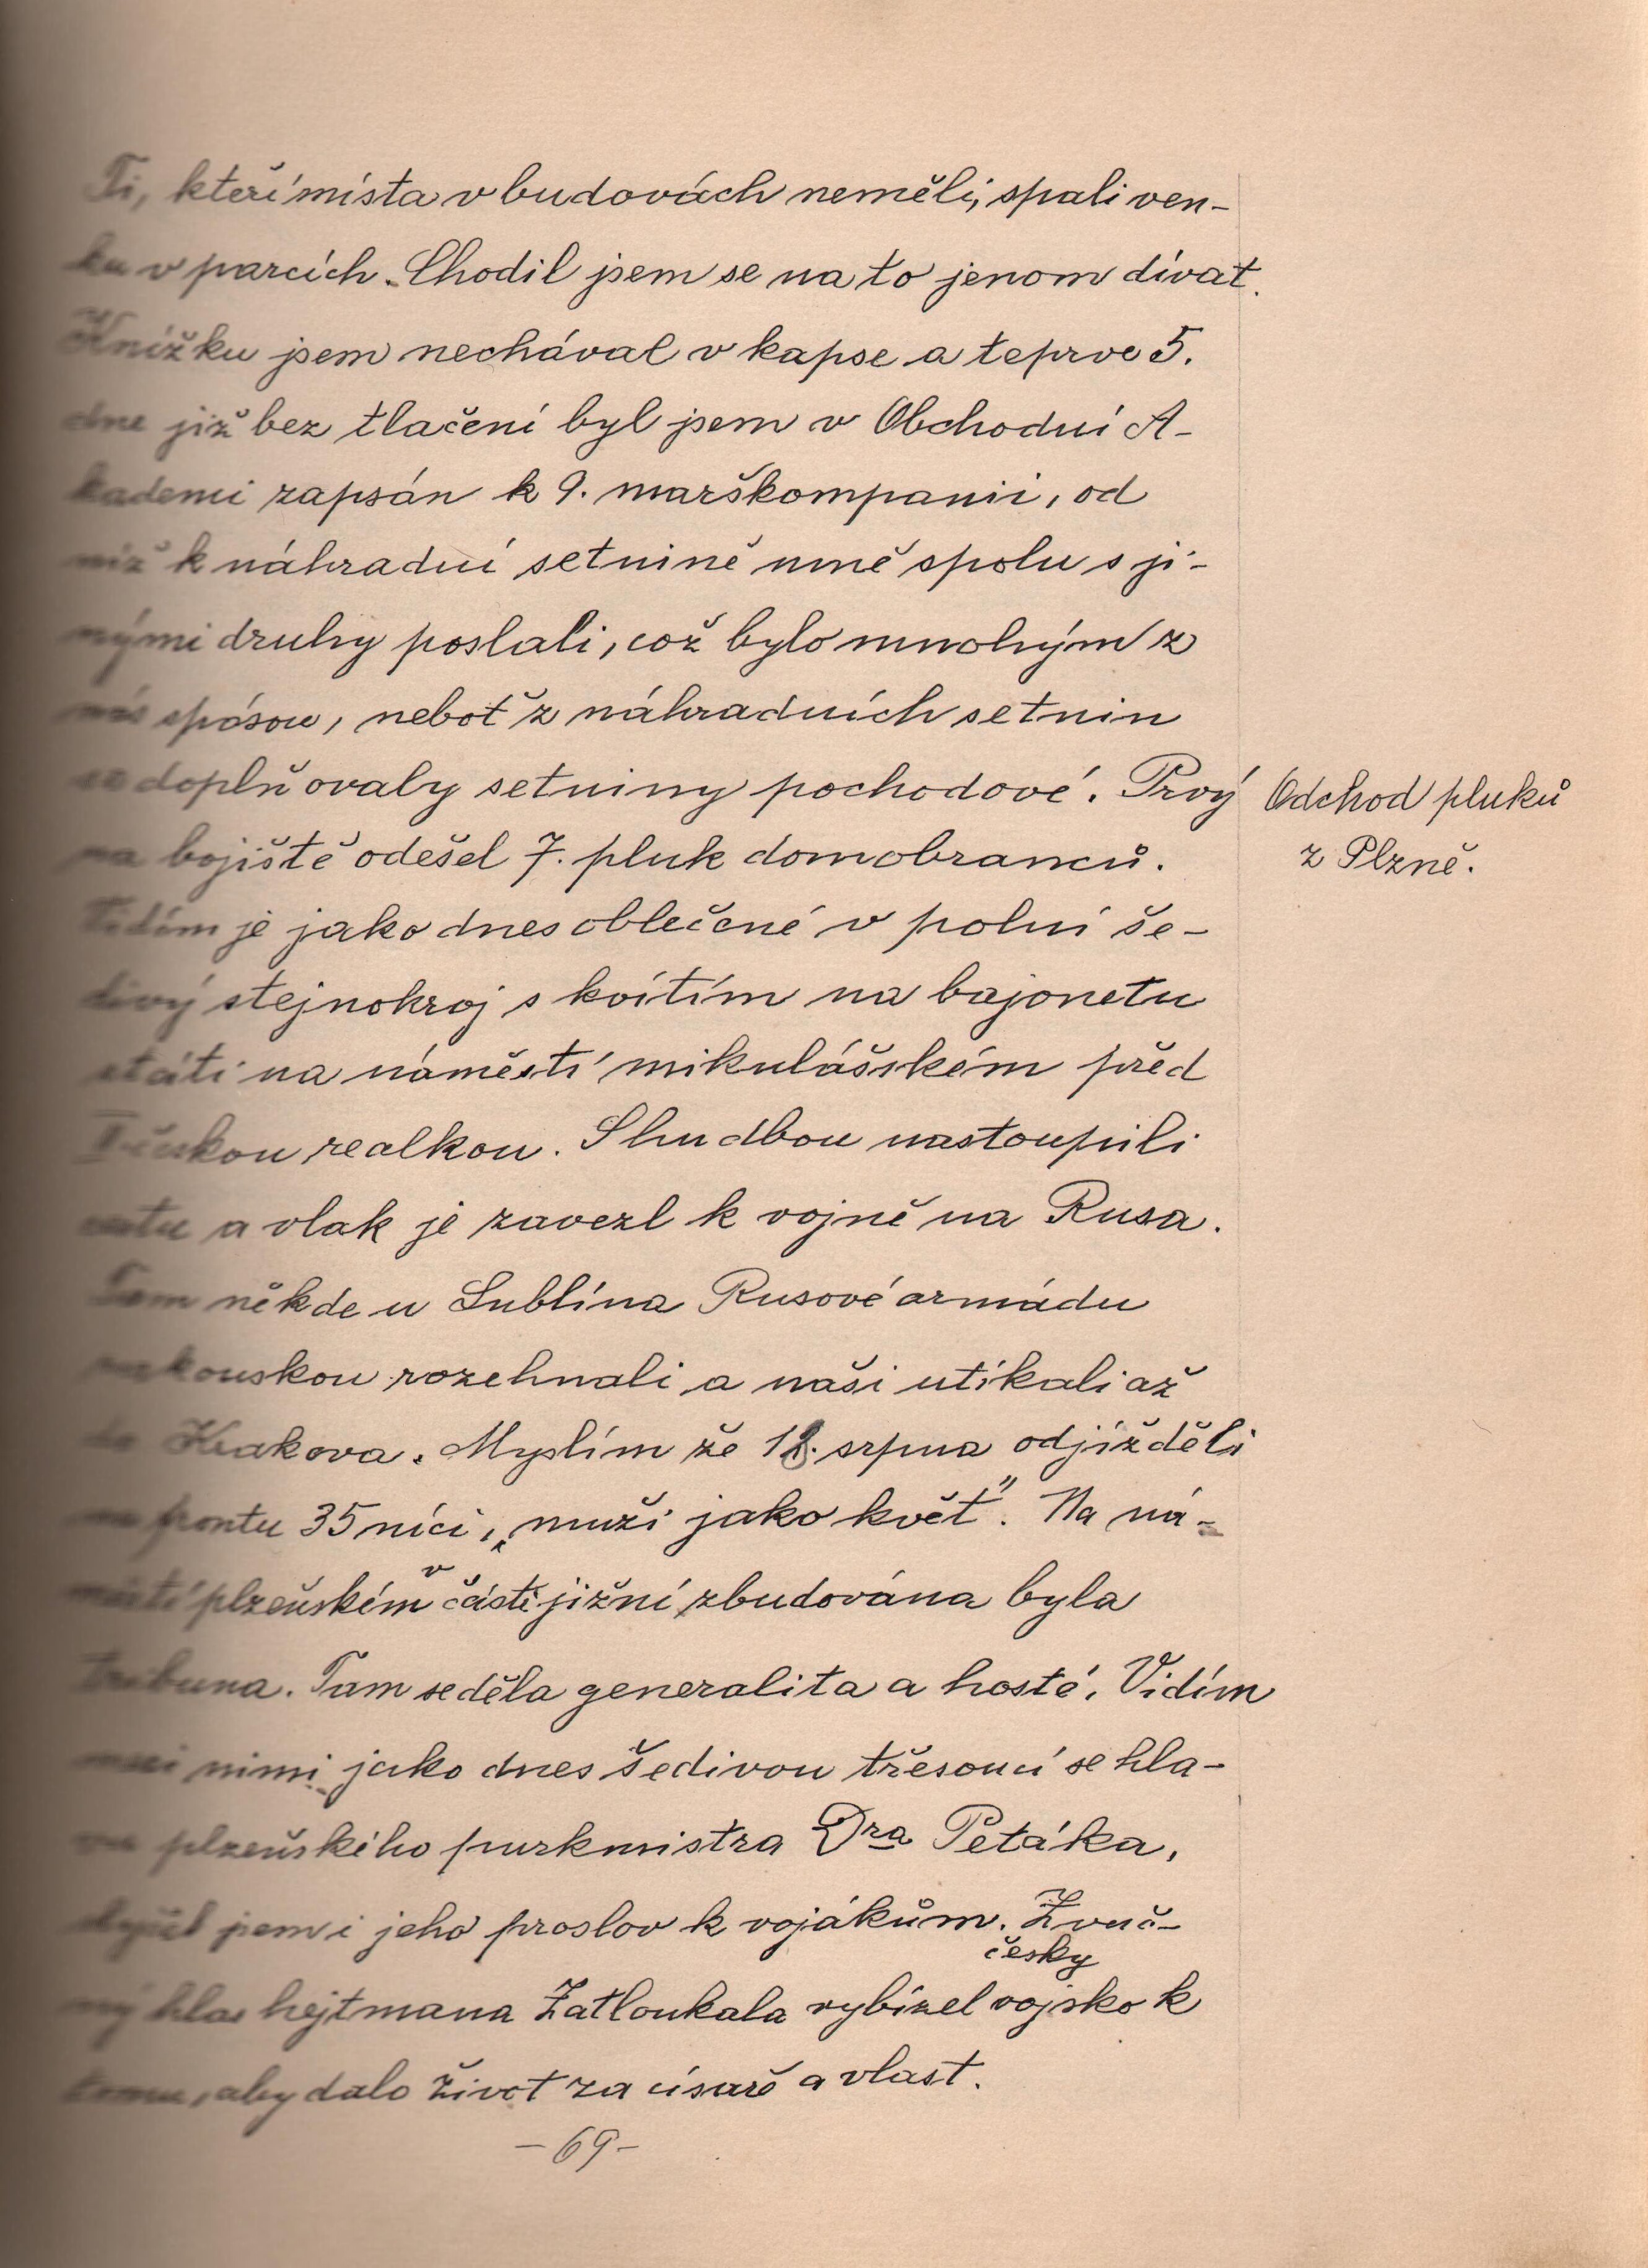 Ti, kteří místa v budovách neměli, spali ven-
ku v parcích. Chodil jsem se na to jenom dívat.
Knížku jsem nechával v kapse a teprve 5.
dne již bez tlačení byl jsem v Obchodní A-
kademi zapsán k 9. marškompanii, od
níž k náhradní setnině mně spolu s ji-
nými druhy poslali, což bylo mnohým z
nás spásou, neboť z náhradních setnin
se doplňovaly setniny pochodové. Prvý
Odchod pluků
z Plzně.
na bojiště odešel 7. pluk domobranců.
Vidím je jako dnes oblečené v polní še-
divý stejnokroj s kvítím na bajonetu
státi na náměstí mikulášském před
II českou realkou. S hudbou nastoupili
cestu a vlak je zavezl k vojně na Rusa.
Tam někde u Lublína Rusové armádu
rakouskou rozehnali a naši utíkali až
do Krakova. Myslím že 12. srpna odjížděli
na frontu 35níci, „muži jako květ". Na ná-
městí plzeňském v části jižní zbudována byla
tribuna. Tam seděla generalita a hosté. Vidím
mezi nimi jako dnes šedivou třesoucí se hla-
vu plzeňského purkmistra Dra Petáka,
slyšel jsem i jeho proslov k vojákům. Zvuč-
ný hlas hejtmana Zatloukala česky vybízel vojsko k
tomu, aby dalo život za císaře a vlast.
- 69 -